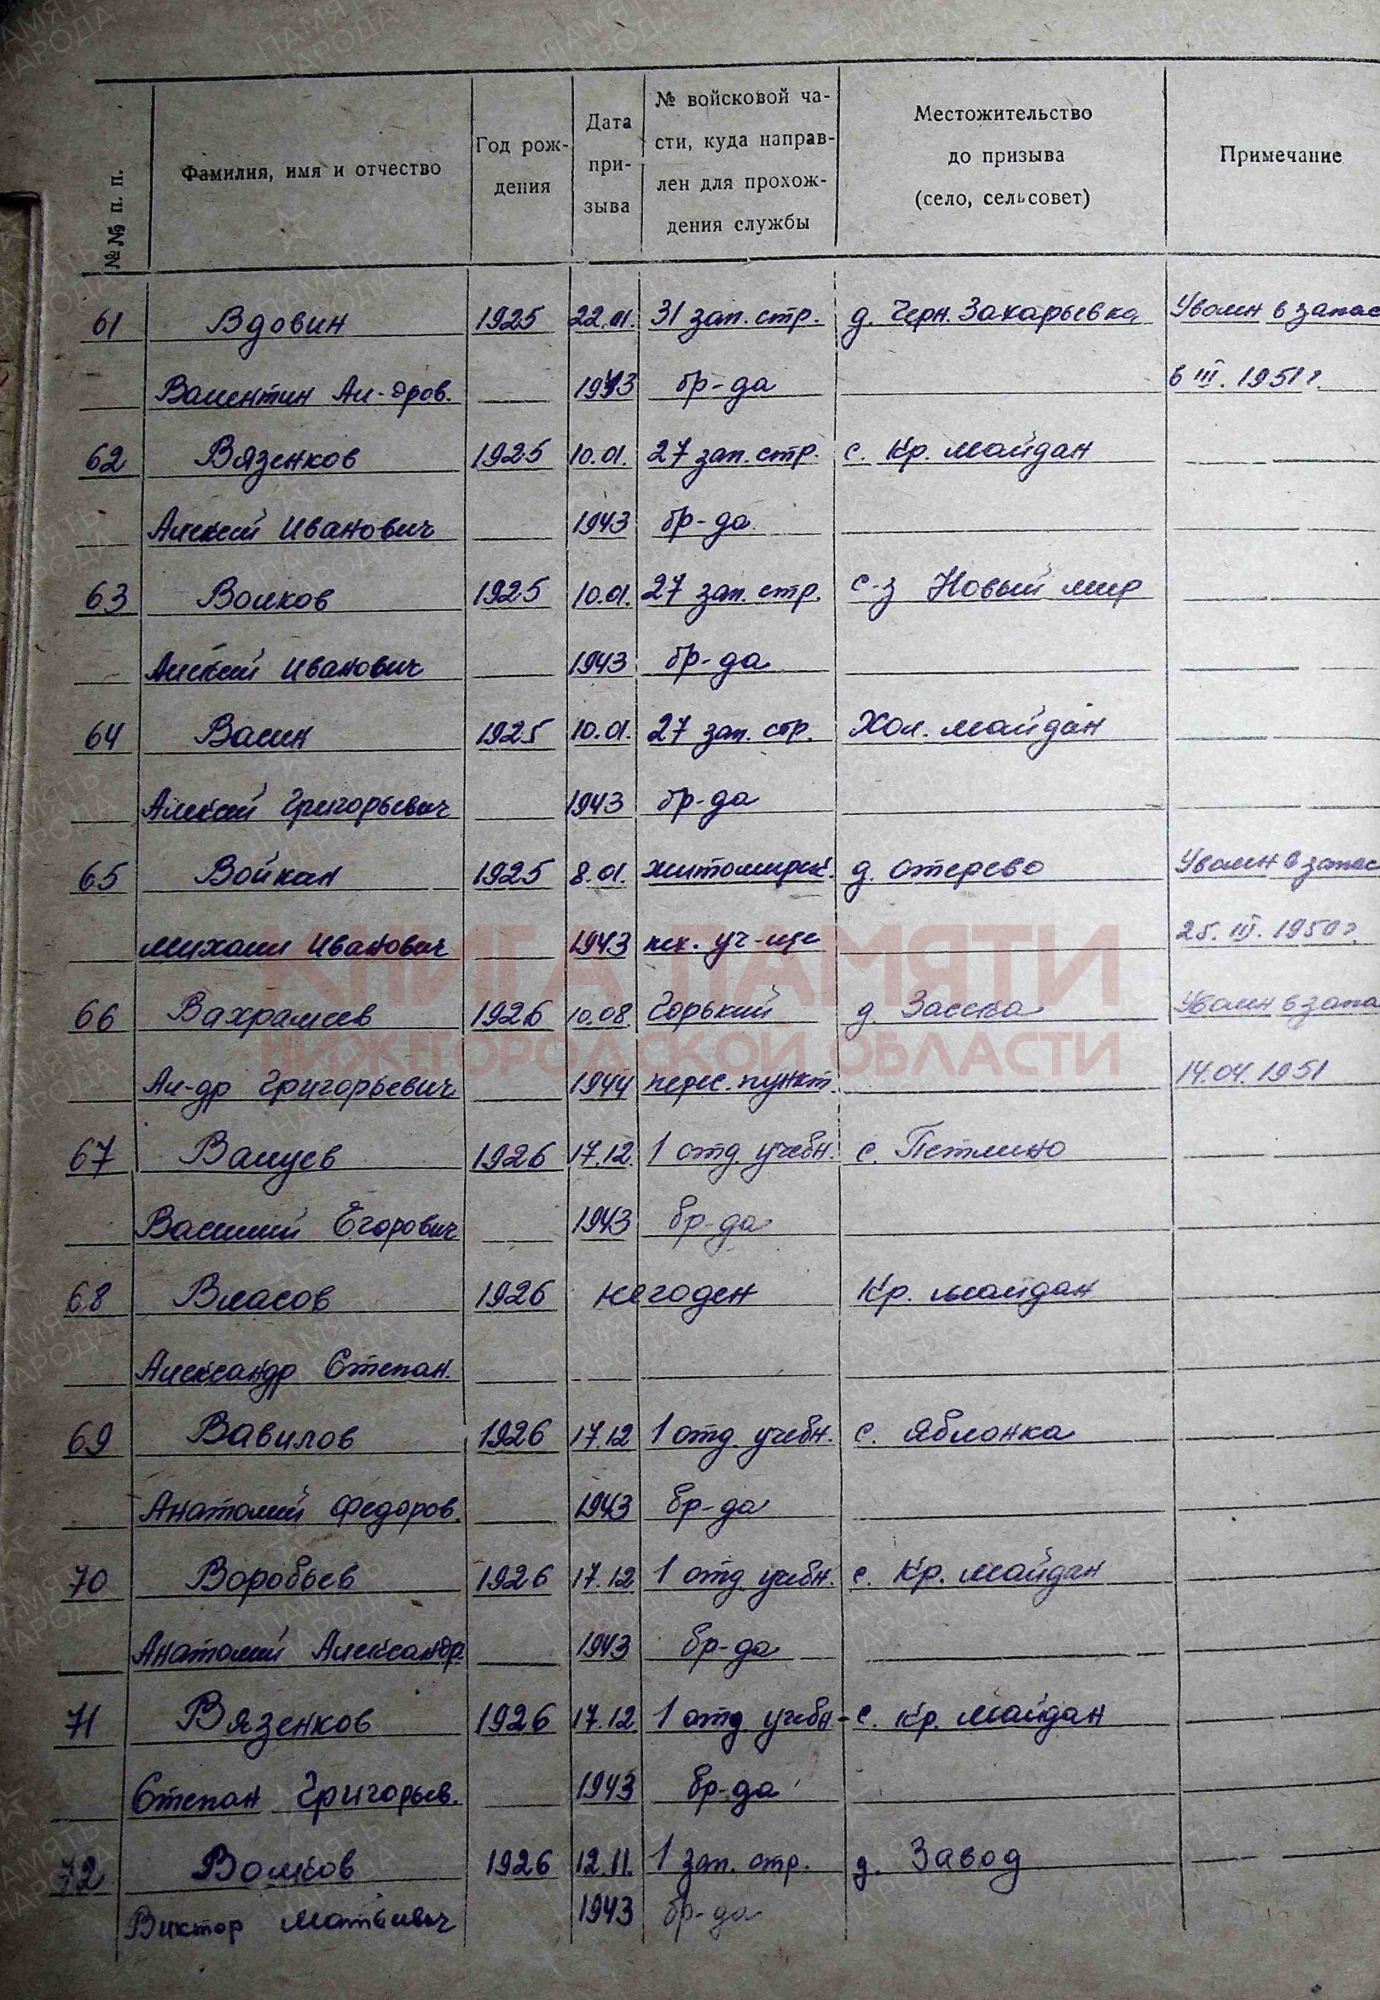 №№ п. п.
Фамилия, имя и отчество
Год рож-
дения
Дата
при-
зыва
№ войсковой ча-
сти, куда направ-
лен для прохож-
дения службы
Местожительство
до призыва
(село, сельсовет)
Примечание
61 Вдовин 1925 22.01. 31 зап. стр. д. Черн. Захарьевка Уволен в запас
Валентин Ал-дров. 1943 бр-да в III. 1951 г.
62 Вязенков 1925 10.01. 27 зап. стр. с. Кр. Майдан
Алексей Иванович 1943 бр-да
63 Волков 1925 10.01. 27 зап. стр. с-з Новый мир
Алексей Иванович 1943 бр-да
64 Васин 1925 10.01. 27 зап. стр. Хол. Майдан
Алексей Григорьевич 1943 бр-да
65 Войкан 1925 8.01. Житомирск. д. Отерево Уволен в запас
Михаил Иванович 1943 пех. уч-ще 25. III. 1950 г.
66 Вахрамеев 1926 10.08 Горький д. Засека Уволен в запа
Ал-др Григорьевич 1944 перес. пункт. 14.04.1951
67 Валуев 1926 17.12. 1 отд. учебн. с. Петлино
Василий Егорович 1943 бр-да
68 Власов 1926 негоден Кр. Майдан
Александр Степан.
69 Вавилов 1926 17.12 1 отд. учебн. с. Яблонка
Анатолий Федоров. 1943 бр-да
70 Воробьев 1926 17.12 1 отд. учебн. с. Кр. Майдан
Анатолий Александр. 1943 бр-да
71 Вязенков 1926 17.12 1 отд. учебн - с. Кр. Майдан
Степан Григорьев. 1943 бр-да
72 Волков 1926 12.11. 1 зап. стр. д. Завод
Виктор Матвеевич 1943 бр-да
КНИГА ПАМЯТИ
НИЖЕГОРОДСКОЙ ОБЛАСТИ
ПАМЯТЬ
НАРОДА